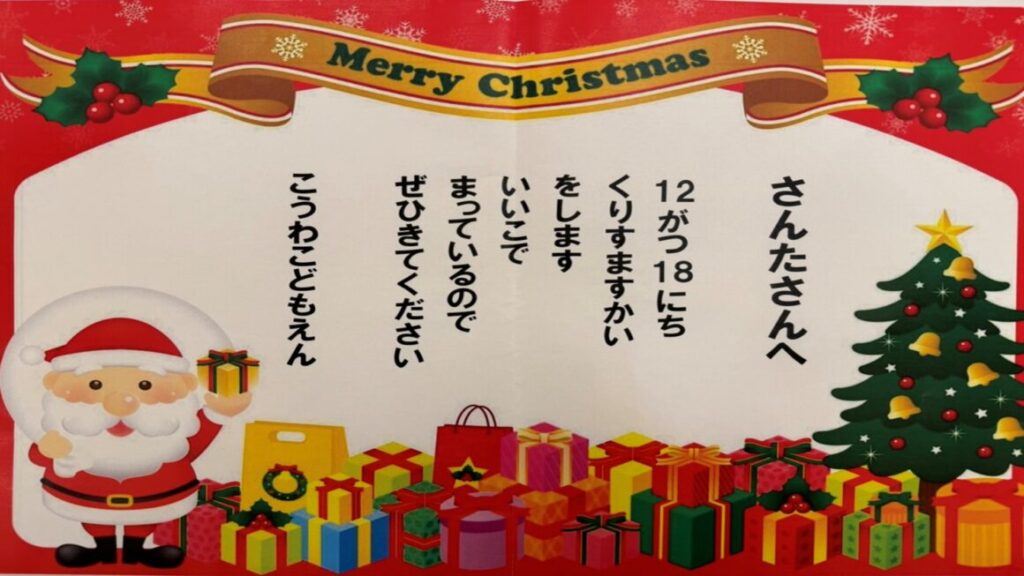 Merry Christmas
さんたさんへ
12がつ18にち
くりすますかい
をします
いいこで
まっているので
ぜひきてください
こうわこどもえん